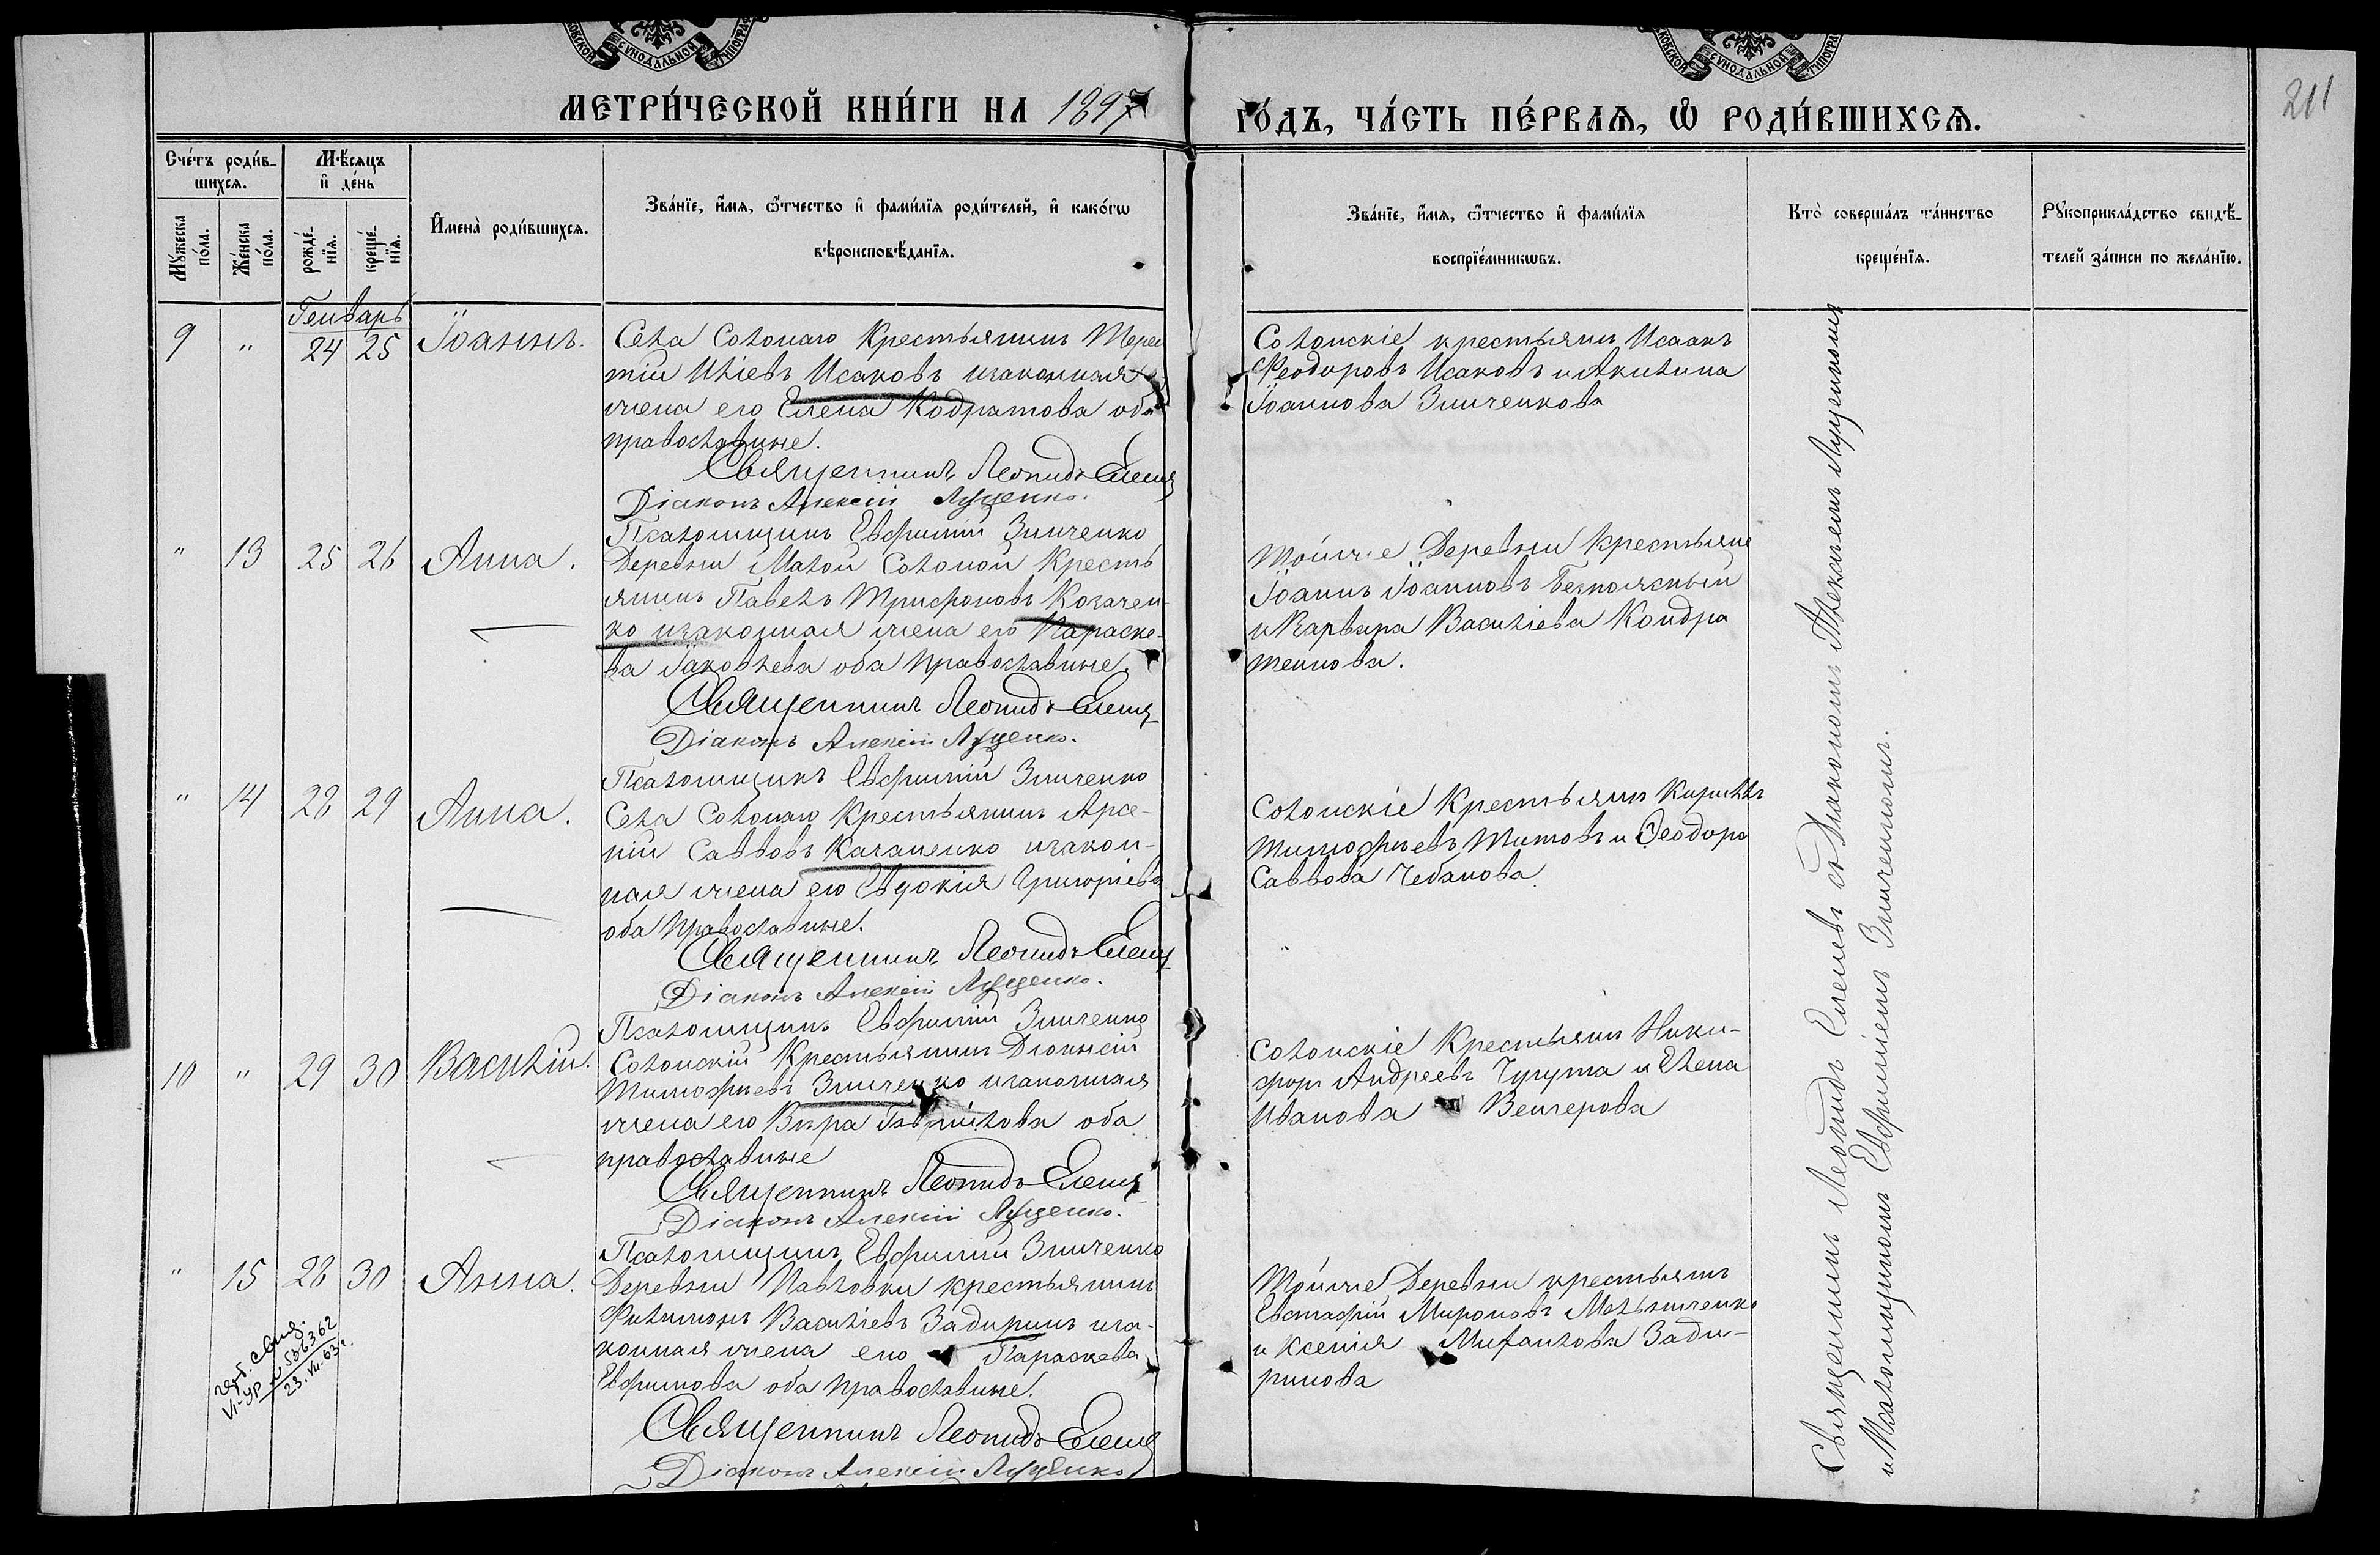 МЕТРИ́ЧЕСКОЙ КНИ́ГИ НА 1897
ГО́ДЪ, ЧА́СТЬ ПЕ́РВАЯ, Ѽ РОДИ́ВШИХСЯ.
211
Сче́тъ роди́в-
шихся.
Мꙋ́жеска по́ла.
Же́нска по́ла.
Мѣ́сяцъ
и҆ де́нь
рожде́-
нїя.
креще́-
нїя.
И҆мена̀ роди́вшихся.
Зва́нїе, и҆́мя, ѻ҆́тчество и҆ фами́лїя роди́телей, и҆ како́гѡ
вѣроисповѣ́данїя.
Зва́нїе, и҆́мя, ѻ҆́тчество и҆ фами́лїя
воспрїе́мникѡвъ.
Кто̀ соверша́лъ та́инство
креще́нїя.
Рꙋкоприкла́дство свидѣ́-
телей за́писи по жела́нїю.
Генварь
9 " 24 25 Іоаннъ.
Села Солонаго Крестьянинъ Терен
тій Иліевъ Исаковъ изаконная
жена его Елена Кодратова оба
православные.
Священникъ Леонидъ Еленев
Діаконъ Алексій Луценко.
Псаломщикъ Евфимій Зинченко
Солонскіе крестьяни Исаакъ
Феодоровъ Исаковъ и Акилина
Іоаннова Зинченкова
" 13 25 26 Анна.
Деревни Малой Солоной Кресть
янинъ Павелъ Трифоновъ Козачен
ко изаконная жена его Параске-
ва Іаковлева оба православные.
Священникъ Леонидъ Еленев
Діаконъ Алексій Луценко.
Псаломщикъ Евфимій Зинченко
Тойже Деревни Крестьяне
Іоаннъ Іоанновъ Безпоясный
и Варвара Василіева Кондра
тенкова.
" 14 28 29 Анна.
Села Солонаго Крестьянинъ Арсе-
ній Саввовъ Качаненко изакон-
ная жена его Евдокія Григоріева
оба православные.
Священникъ Леонидъ Еленев
Діаконъ Алексій Луценко.
Псаломщикъ Евфимій Зинченко
Солонскіе Крестьяни Кириллъ
Тимофѣевъ Титовъ и Ѳеодора
Саввова Чебанова
10 " 29 30 Василій.
Солонскій Крестьянинъ Діонисій
Тимофѣевъ Зинченко изаконная
жена его Вѣра Гавріилова оба
православные
Священникъ Леонидъ Еленев
Діаконъ Алексій Луценко.
Псаломщикъ Евфимій Зинченко
Солонскіе Крестьяни Ники-
форъ Андреевъ Чугута и Елена
Иванова Венгерова
" 15 28 30 Анна.
Деревни Павловки крестьянинъ
Филимонъ Василіевъ Задиринъ иза-
конная жена его Параскева
Евфимова оба православные.
Священникъ Леонидъ Еленев
Діаконъ Алексій Луценко
Тойже Деревни крестьяни
Евстафій Мироновъ Мельниченко
и Ксенія Михаилова Зади-
ринова
536362
23.VII.63г.
Священникъ Леонидъ Еленевъ съ Діакономъ Алексіемъ Луценкомъ
и Псаломщикомъ Евфиміемъ Зинченкомъ.